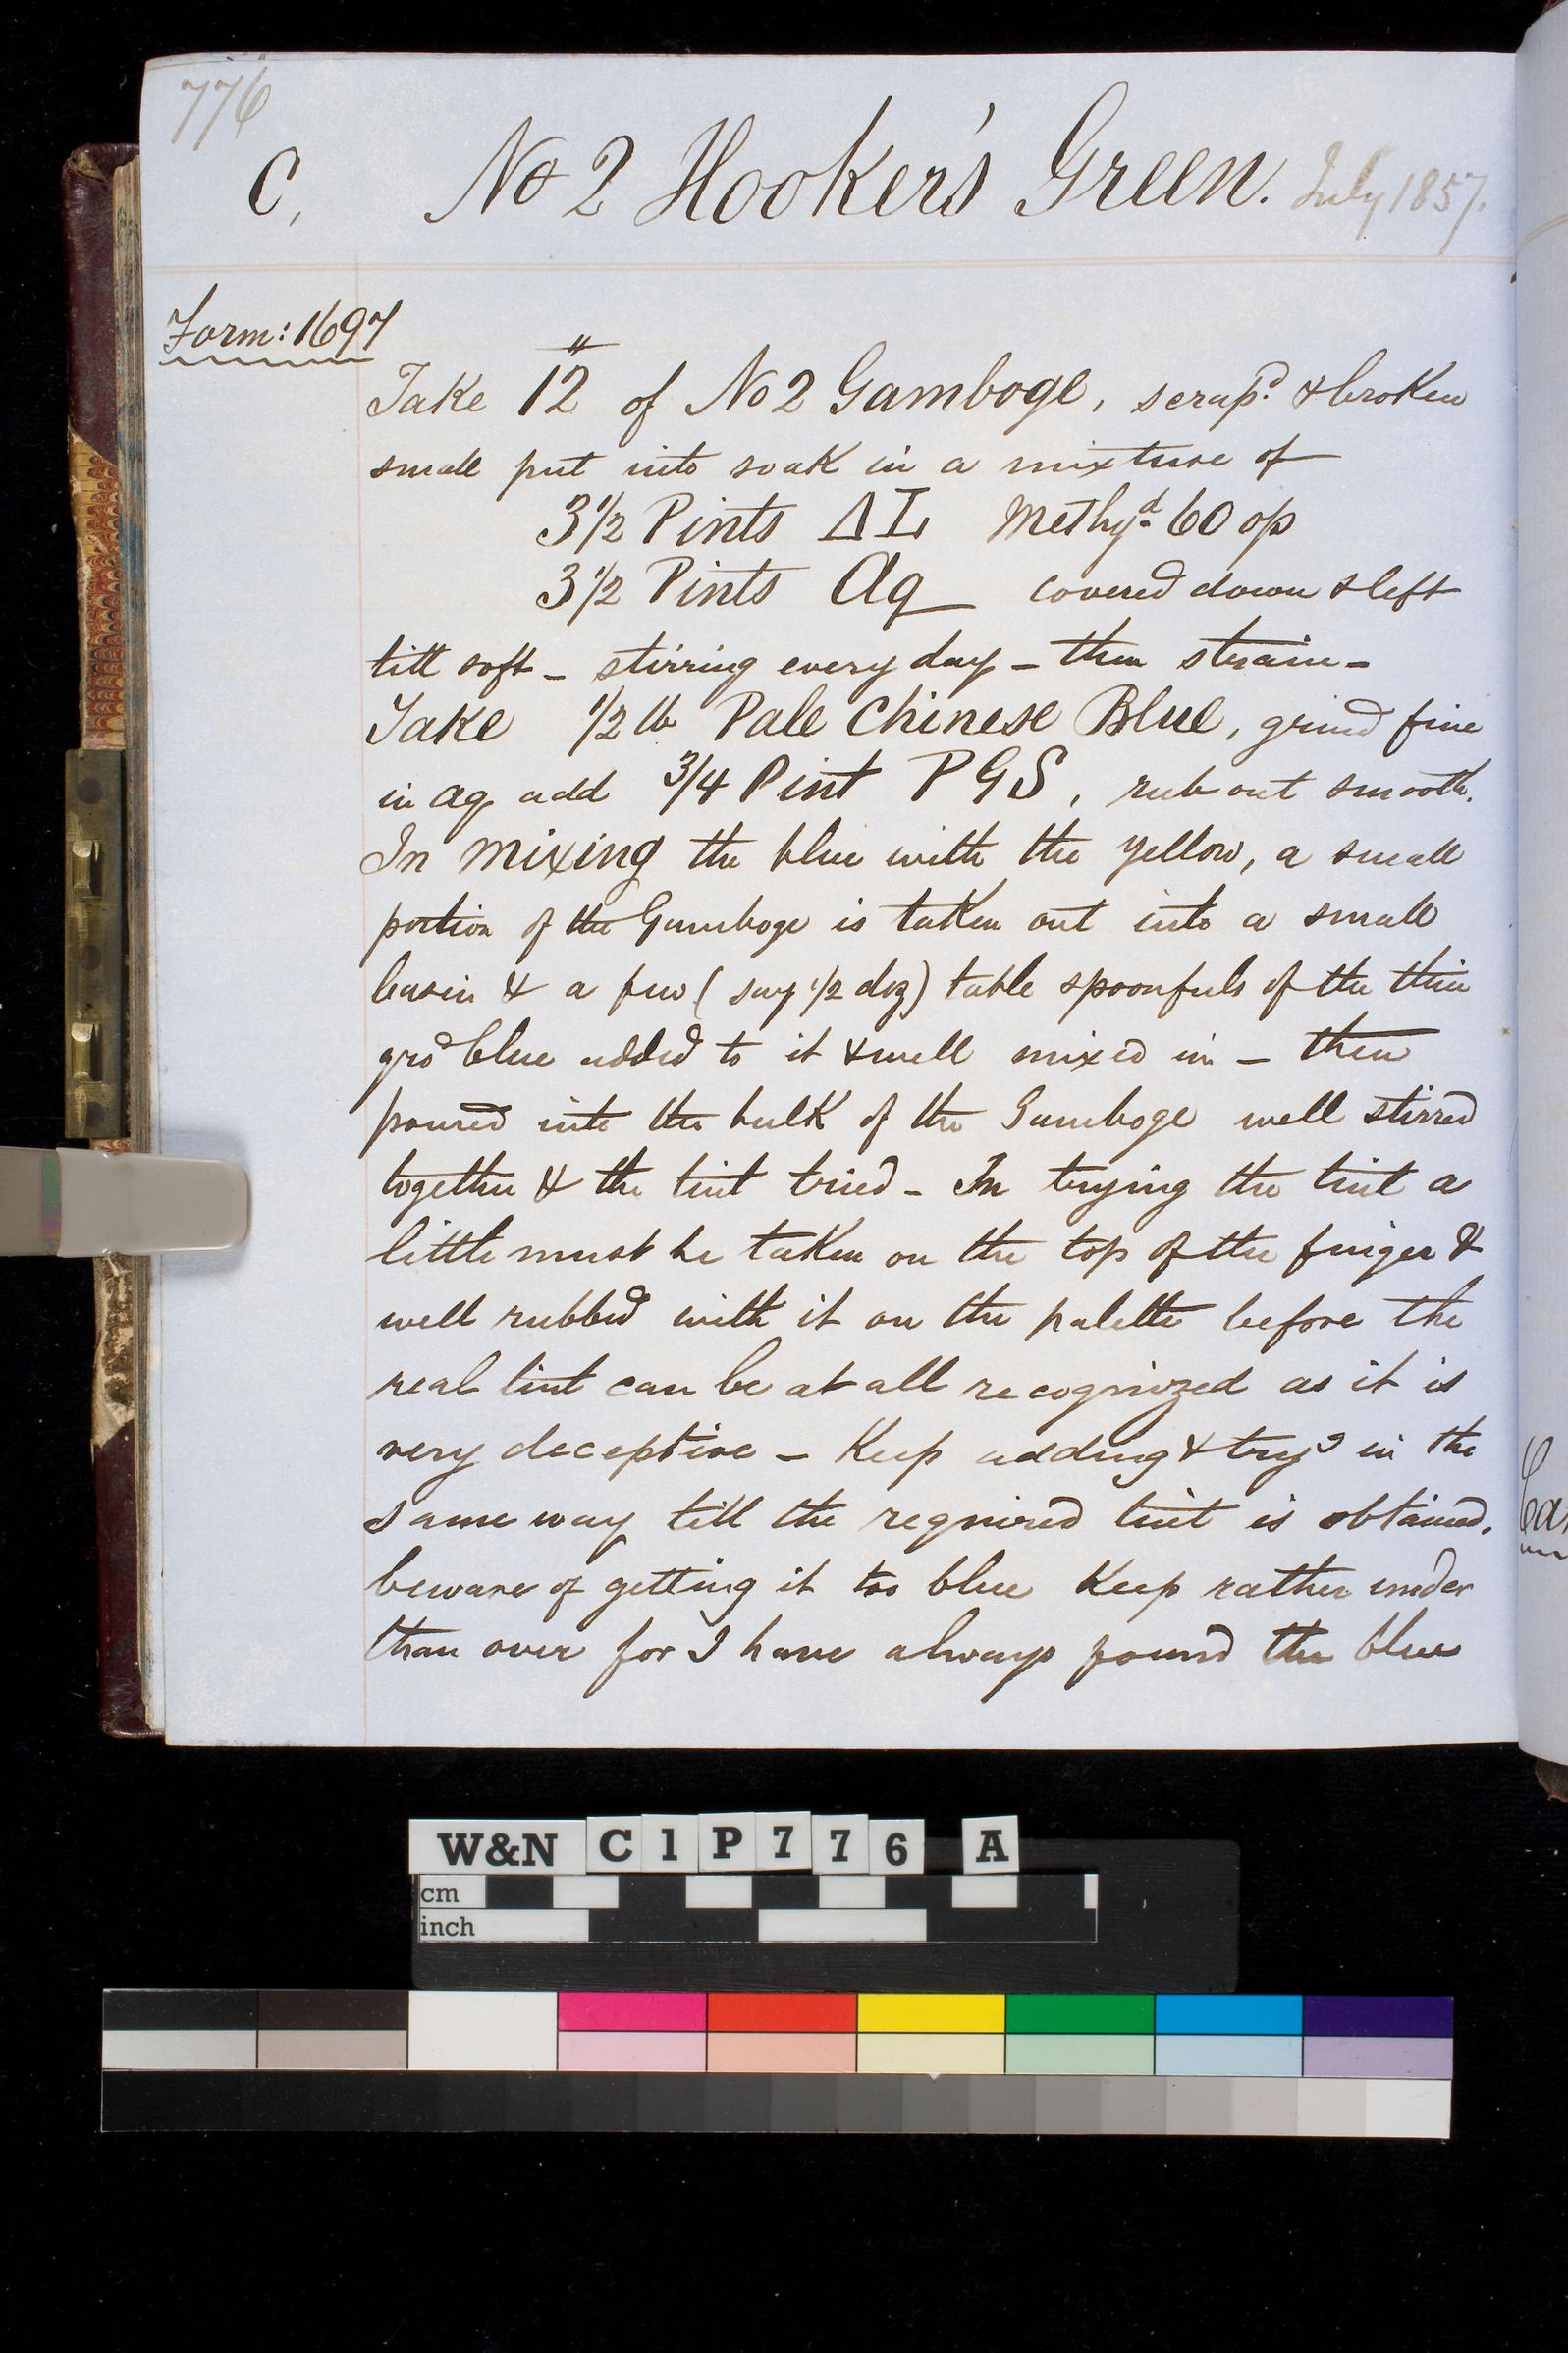 776
C, No 2 Hooker's Green. July 1857.
Form: 1697
Take 12 " of No 2 Gamboge, scrapd. & broken
small put into soak in a mixture of
3 1/2 Pints ΔL Methyd. 60 op
3 1/2 Pints Aq covered down & left
till soft - stirring every day - then strain -
Take 1/2 lb Pale Chinese Blue, grind fine
in aq add 3/4 Pint PGS, rub out smooth.
In mixing the blue with the yellow, a small
portion of the Gamboge is taken out into a small
basin & a few (say 1/2 doz) table spoonfuls of the thin
grd blue added to it & well mixed in - then
poured into the bulk of the Gamboge well stirred
together & the tint tried - In trying the tint a
little must be taken on the top of the finger &
well rubbed with it on the palette before the
real tint can be at all recognized as it is
very deceptive - Keep adding & tryg in the
same way till the required tint is obtained.
beware of getting it too blue Keep rather under
than over for I have always found the blue
W&N C1P776 A
cm
inch